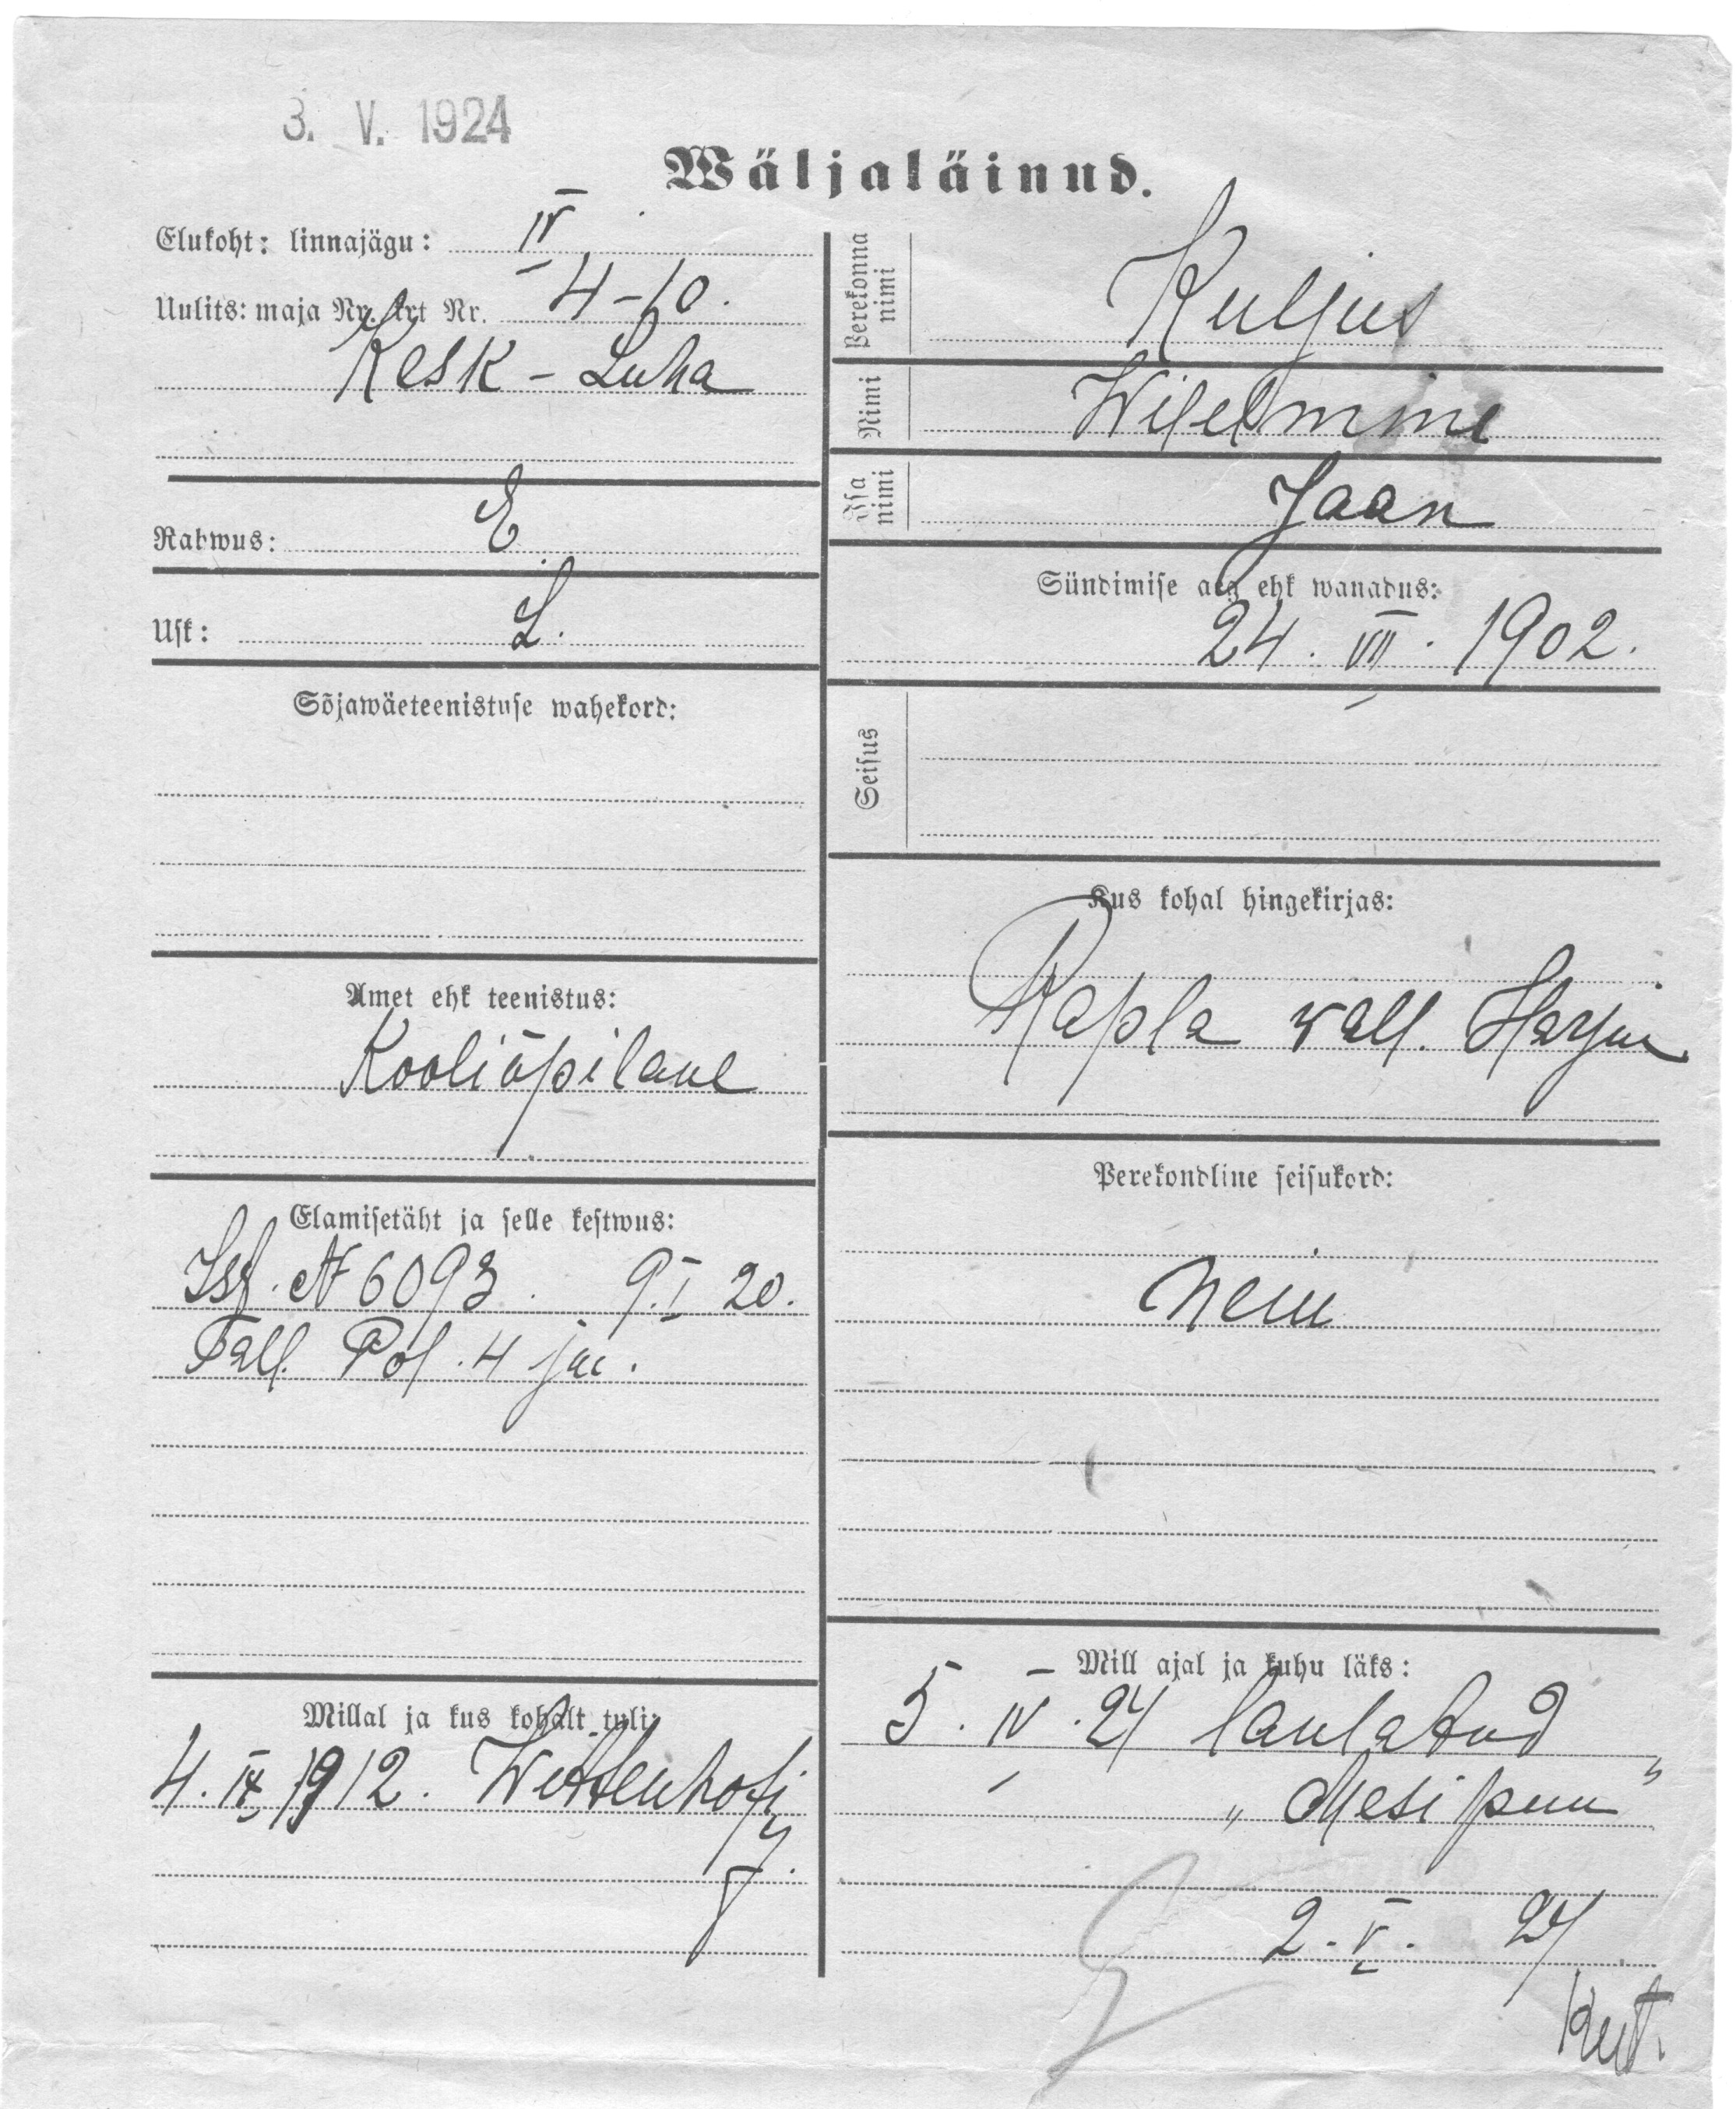 3. V. 1924
Wäljaläinud.
Elukoht: linnajägu: IV
Uulits: maja Nr. krt Nr. 4-10.
Kesk-Luha
Rahwus: E
Usk: L.
Sõjawäeteenistuse wahekord:
Amet ehk teenistus:
Kooliõpilane
Elamisetäht ja selle kestwus:
Isf. N 6093. 9. I 20.
Tall. Pol. 4 jac.
Millal ja kus kohalt tuli:
4. IX 1912.
Perekonna nimi Kuljus
Nimi Wilelmine
Isa nimi Jaan
Sündimise aeg ehk wanadus:
24. VII. 1902.
Seisus
Kus kohal hingekirjas:
Rapla wall. Harju
Perekondline seisukord:
Neiu
Mill ajal ja kuhu läks:
5. IV. 24 laulatud
„Mesipuu”
2. V. 24